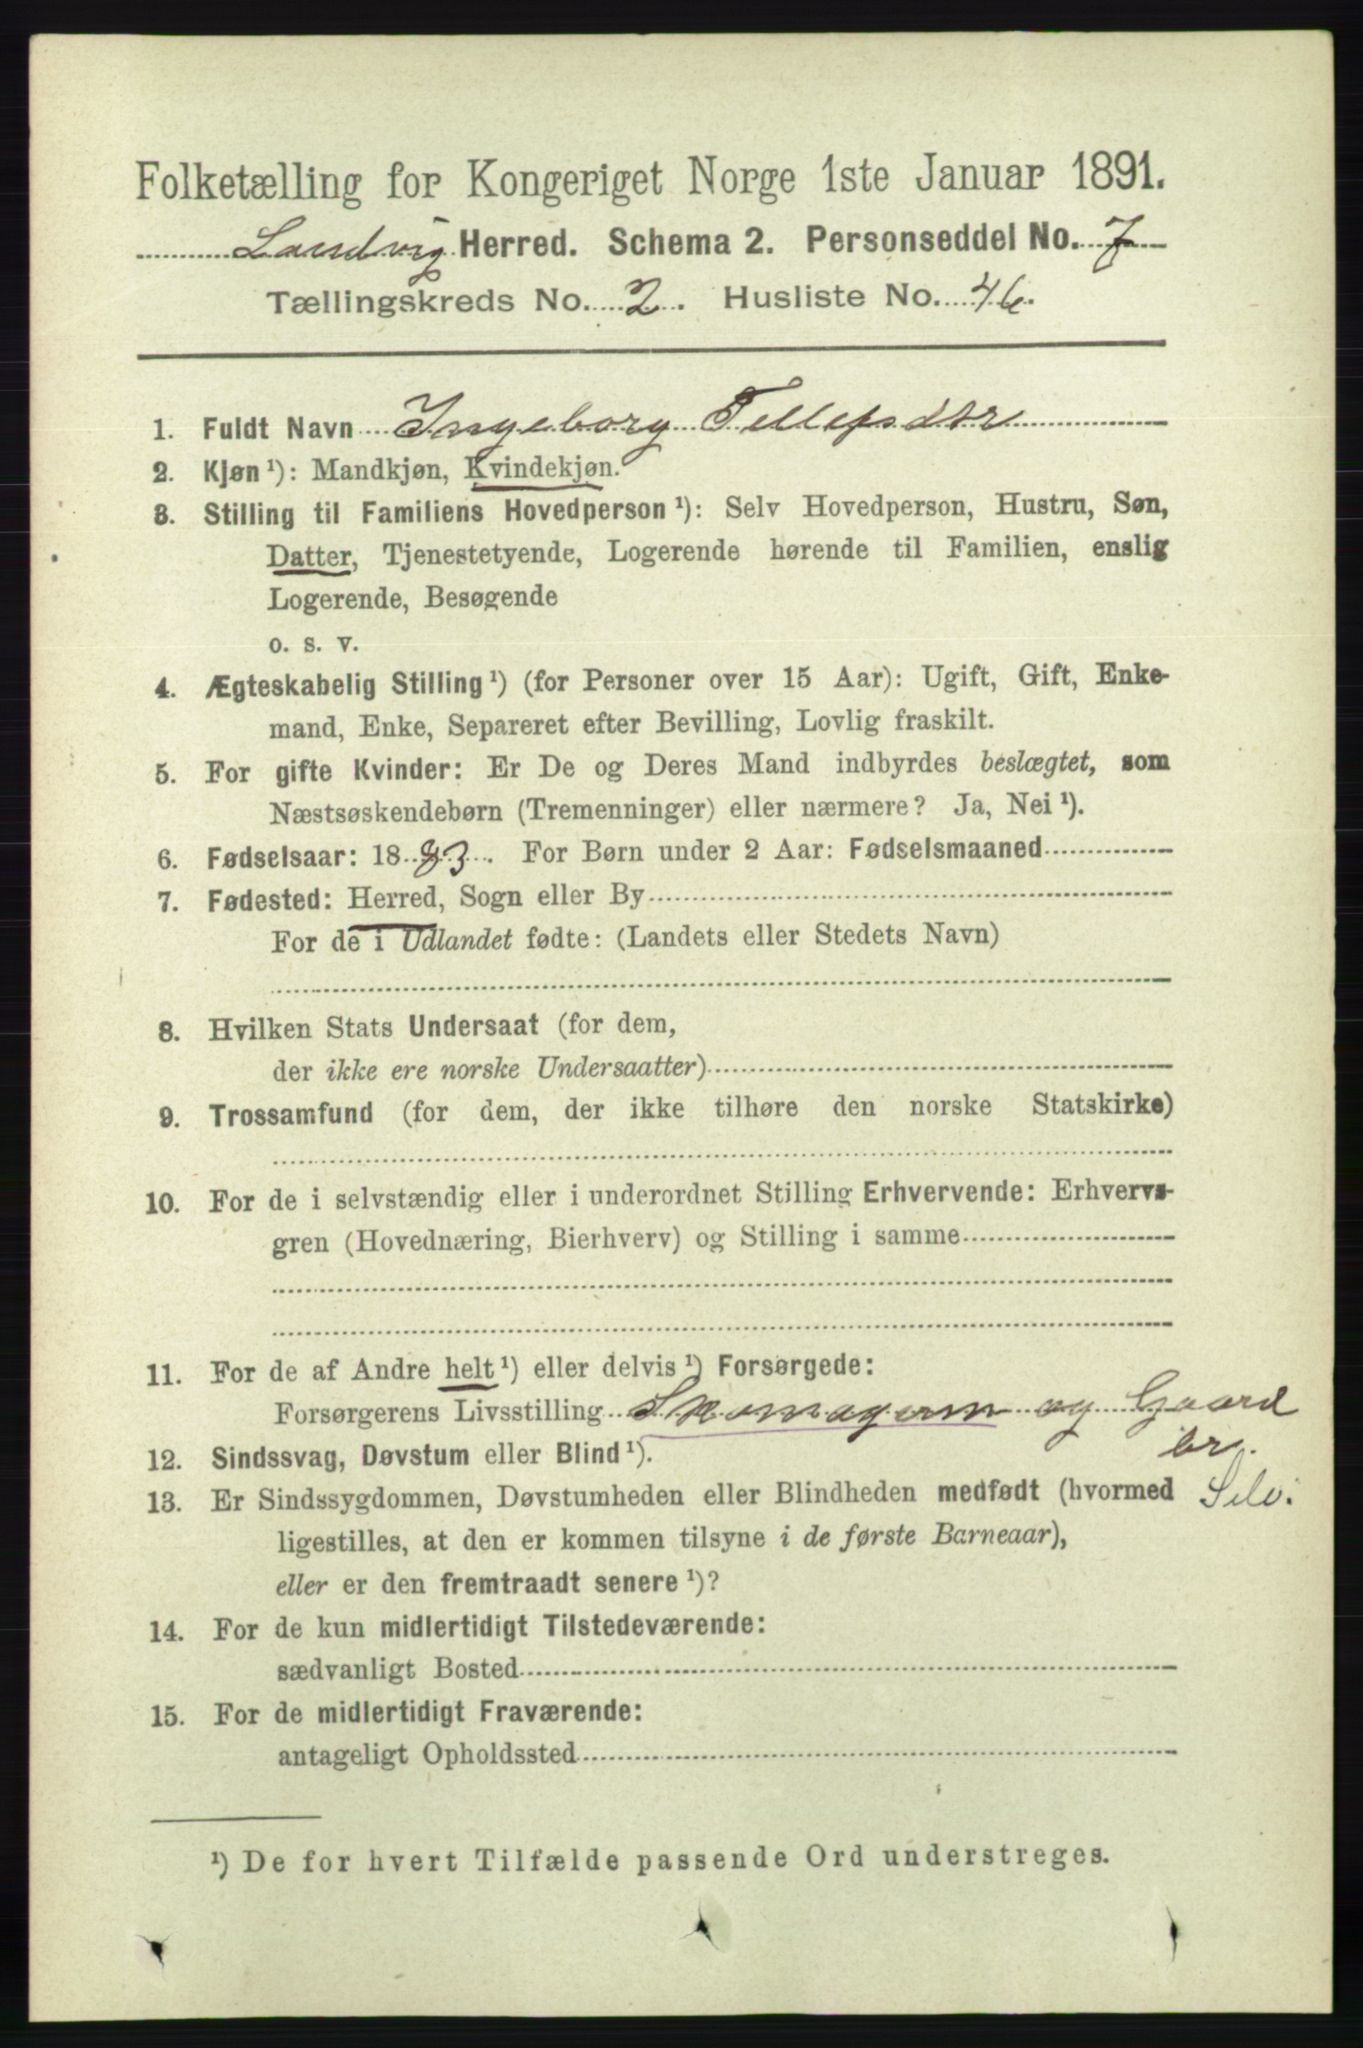 Folketælling for Kongeriget Norge 1ste Januar 1891.
Landvig Herred. Schema 2. Personseddel No. 7
Tællingskreds No. 2. Husliste No. 46.
1. Fuldt Navn Ingeborg Tellefsdtr
2. Kjøn ¹): Mandkjøn, Kvindekjøn.
3. Stilling til Familiens Hovedperson ¹): Selv Hovedperson, Hustru, Søn,
Datter, Tjenestetyende, Logerende hørende til Familien, enslig
Logerende, Besøgende
o. s. v.
4. Ægteskabelig Stilling ¹) (for Personer over 15 Aar): Ugift, Gift, Enke-
mand, Enke, Separeret efter Bevilling, Lovlig fraskilt.
5. For gifte Kvinder: Er De og Deres Mand indbyrdes beslægtet, som
Næstsøskendebørn (Tremenninger) eller nærmere? Ja, Nei ¹).
6. Fødselsaar: 1883. For Børn under 2 Aar: Fødselsmaaned
7. Fødested: Herred, Sogn eller By
For de i Udlandet fødte: (Landets eller Stedets Navn)
8. Hvilken Stats Undersaat (for dem,
der ikke ere norske Undersaatter)
9. Trossamfund (for dem, der ikke tilhøre den norske Statskirke)
10. For de i selvstændig eller i underordnet Stilling Erhvervende: Erhvervs-
gren (Hovednæring, Bierhverv) og Stilling i samme
11. For de af Andre helt ¹) eller delvis ¹) Forsørgede:
Forsørgerens Livsstilling og Gaard
br.
12. Sindssvag, Døvstum eller Blind ¹).
13. Er Sindssygdommen, Døvstumheden eller Blindheden medfødt (hvormed Selv.
ligestilles, at den er kommen tilsyne i de første Barneaar),
eller er den fremtraadt senere ¹)?
14. For de kun midlertidigt Tilstedeværende:
sædvanligt Bosted
15. For de midlertidigt Fraværende:
antageligt Opholdssted
¹) De for hvert Tilfælde passende Ord understreges.